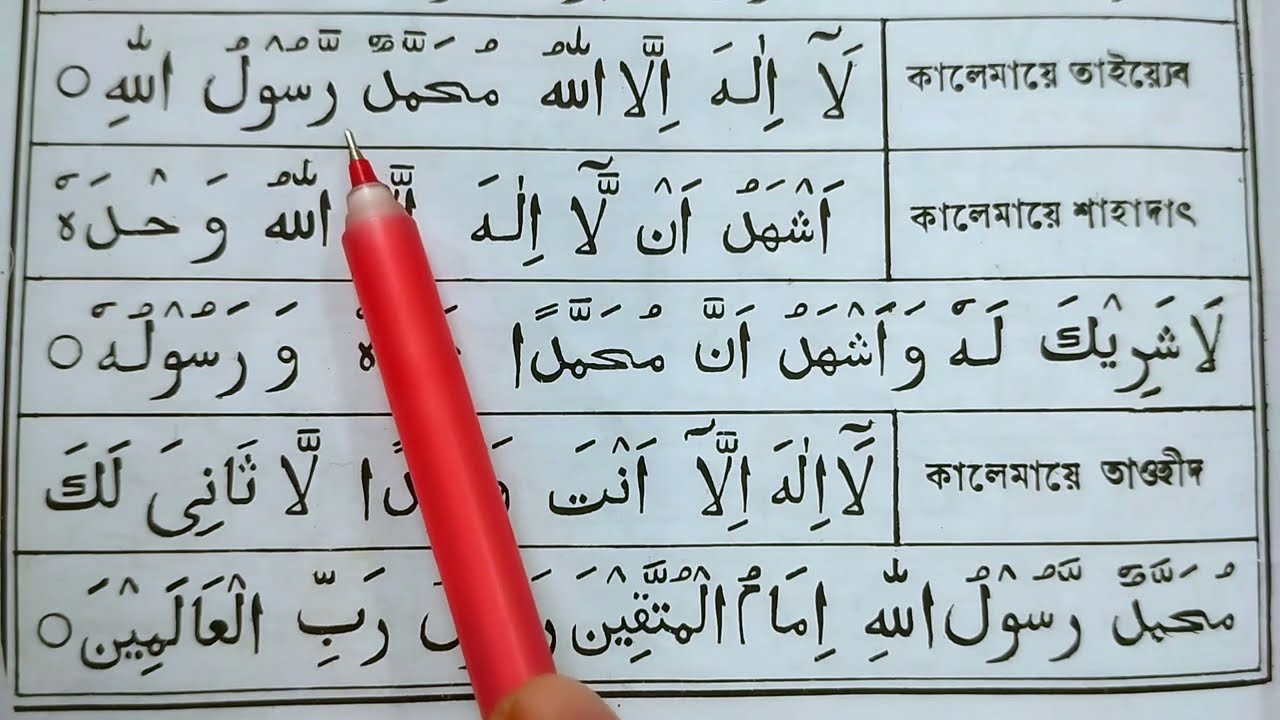 কালেমায়ে তাইয়্যেব لَآ اِلٰهَ اِلَّا اللّٰهُ مُحَمَّدٌ رَّسُوْلُ اللّٰهِ ○
কালেমায়ে শাহাদাৎ اَشْهَدُ اَنْ لَّآ اِلٰهَ اللّٰهُ وَحْدَهٗ
لَا شَرِيْكَ لَهٗ وَاَشْهَدُ اَنَّ مُحَمَّدًا وَرَسُوْلُهٗ ○
কালেমায়ে তাওহীদ لَآ اِلٰهَ اِلَّآ اَنْتَ لَّا ثَانِىَ لَكَ
مُحَمَّدٌ رَّسُوْلُ اللّٰهِ اِمَامُ الْمُتَّقِيْنَ رَبِّ الْعَالَمِيْنَ ○